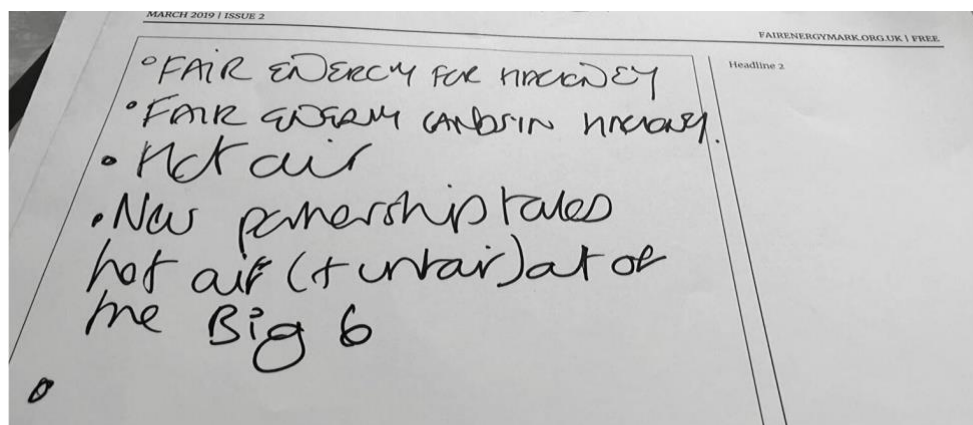 MARCH 2019 | ISSUE 2
FAIRENERGYMARK.ORG.UK | FREE
Headline 2
• FAIR ENERGY FOR HACKNEY
• FAIR ENERGY LANDS IN HACKNEY.
• Hot air
• New partnership takes
hot air (+ unfair) out of
the Big 6